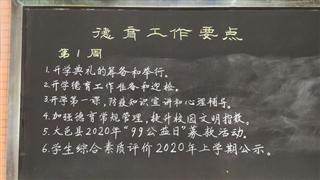 德育工作要点
第1周
1.开学典礼的筹备和举行。
2.开学德育工作准备和迎检。
3.开学第一课,防疫知识宣讲和心理辅导。
4.加强德育常规管理,提升校园文明指数。
5.大邑县2020年“99公益日”募救活动。
6.学生综合素质评价2020年上学期公示。